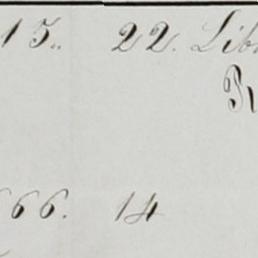 15.. 22. Lib
66. 14